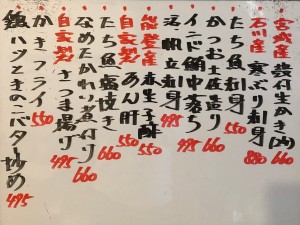 宮城産 殻付生かき(1個) 550
石川産 寒ぶり刺身 880
たち魚刺身 660
かつお土佐造り 660
インド鮪中落ち 495
活〆帆立刺身 495
能登産 赤生子酢 550
自家製 あん肝 550
たち魚塩焼き 660
なめたかれい煮付け 660
自家製 さつま揚げ 495
かきフライ 550
鶏ハツときのこバター炒め 495